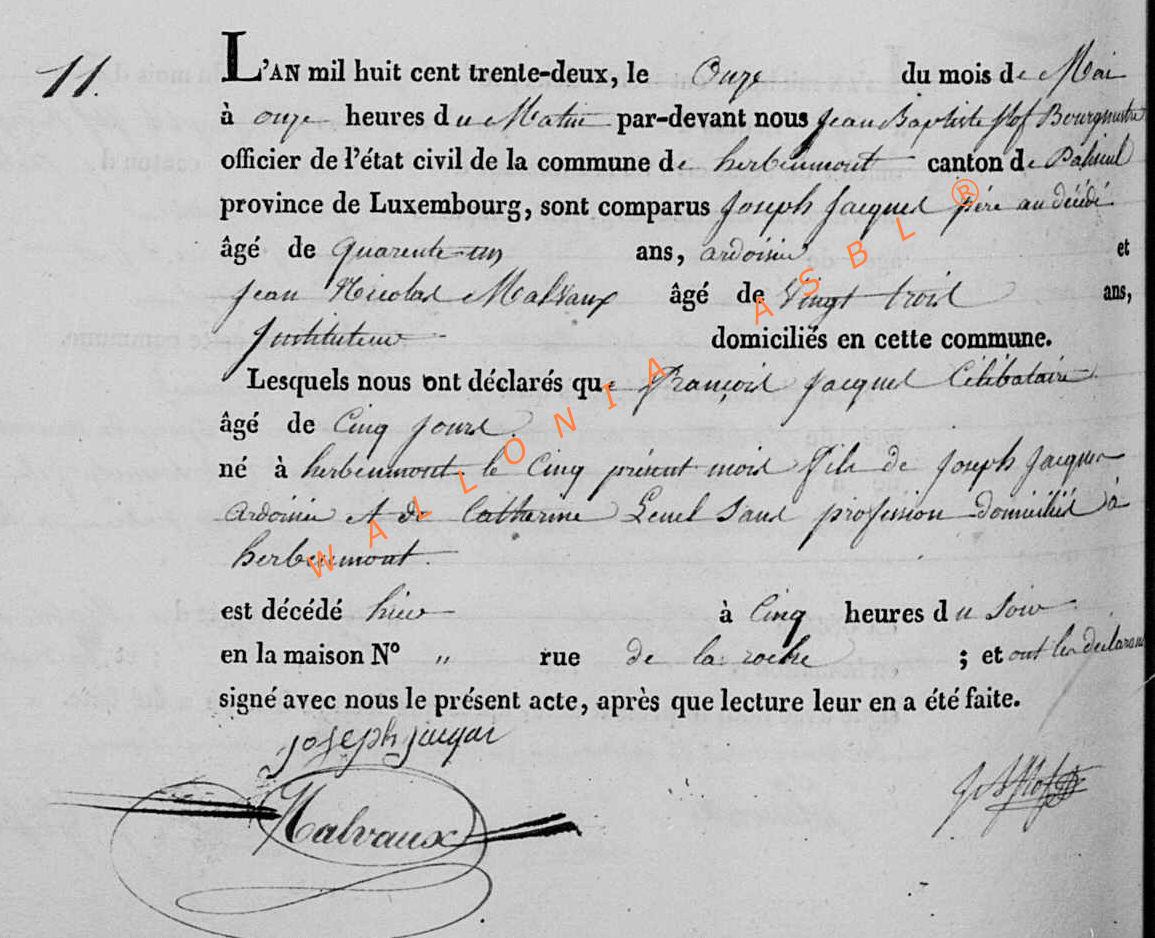 11.
L'AN mil huit cent trente-deux, le Onze du mois de Mai
à onze heures du Matin par-devant nous Jean Baptiste Bourgmestre
officier de l'état civil de la commune de herbeumont canton de Paliseul
province de Luxembourg, sont comparus Joseph Jacques père au décédé
âgé de quarente-un ans, ardoisier et
Jean Nicolas Malvaux âgé de Vingt trois ans,
Instituteur domiciliés en cette commune.
Lesquels nous ont déclarés que françois Jacques Célibataire
âgé de Cinq jours
né à herbeumont le Cinq présent mois fils de Joseph Jacques
Ardoisier et de Catherine sans profession domiciliés à
herbeumont.
est décédé hier à Cinq heures du Soir
en la maison N° „ rue de la roche ; et ont les déclarans
signé avec nous le présent acte, après que lecture leur en a été faite.
Joseph
Malvaux
WALLONIA ASBL ®